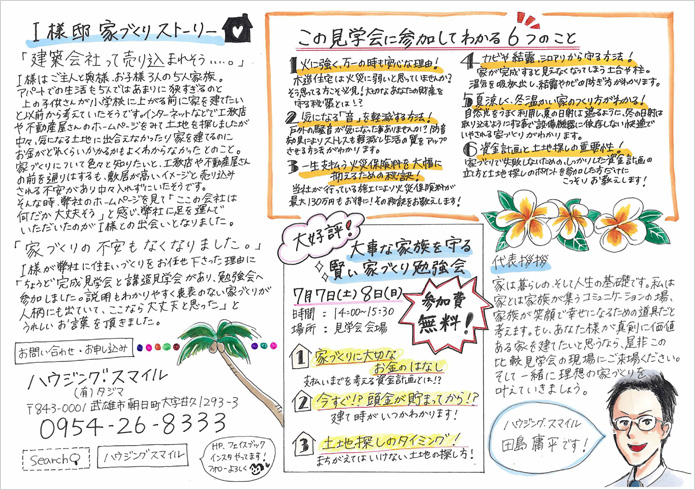 I様邸 家づくりストーリー
「建築会社って売り込まれそう....。」
I様はご主人と奥様、お子様3人の5人家族。
アパートでの生活も5人ではあまりに狭すぎるのと
上の子供さんが小学校に上がる前に家を建てたい
と以前から考えていたそうです。インターネットなどで工務店
や不動産屋さんのホームページをみて土地を探しましたが
中々、気になる土地に出会えなかったり家を建てるのに
お金がどれくらいかかるかもよくわからなかったとのこと。
家づくりについて色々と知りたいと、工務店や不動産屋さん
の前を通りはするも、敷居が高いイメージと売り込み
されそうな不安があり中々入れずにいたそうです。
そんな時、弊社のホームページを見て「ここの会社は
何だか大丈夫そう」と感じ、弊社に足を運んで
いただいたのがI様との出会いとなりました。
「家づくりの不安もなくなりました。」
I様が弊社に住まいづくりをお任せ下さった理由に
「ちょうど完成見学会と構造見学会があり、勉強会へ
参加しました。説明もわかりやすく裏表のない家づくりが
人柄にも出ていて、ここなら大丈夫と思った」と
うれしいお言葉を頂きました。
お問い合わせ・お申し込み
ハウジング・スマイル
(有)タジマ
〒843-0001 武雄市朝日町大字甘久1293-3
0954-26-8333
Search
ハウジングスマイル
HP、フェイスブック
インスタやってます!
フォローよろしく
この見学会に参加してわかる6つのこと
1 火に強く、万一の時も安心な理由!
木造住宅は火災に弱いと思っていませんか?
そう思ってる方を必見!大切なあなたの財産を
守る秘密とは!?
2 気になる「音」を軽減する方法!
戸外の騒音が気になった事ありませんか!?防音
効果によりストレスも軽減し生活の質をアップ
させる方法がわかります。
3 一生支払う火災保険料を大幅に
抑えるための秘訣!
当社が行っている施工により火災保険料が
最大130万円もお得に!その秘訣をお教えします!
4 カビや結露、シロアリから守る方法!
家が完成すると見えなくなってしまう土台や柱。
湿気を吸放出し、結露やカビの防ぎ方がわかります。
5 夏涼しく、冬温かい家のつくり方がわかる!
自然光をうまく利用し、夏の日射は遮るように、冬の日射は
取り込むように行う事で設備機器に依存しない快適で
いやされる家づくりがわかります。
6 資金計画と土地探しの重要性!
家づくりで失敗しないための、しっかりした資金計画の
立て方と土地探しのポイントを参加した方だけに
こっそりお教えします!
大好評!
大事な家族を守る
賢い家づくり勉強会
7月7日(土)8日(日)
時間:14:00~15:30
場所:見学会会場
参加費
無料!
1 家づくりに大切な
お金のはなし
支払いまでを考える資金計画とは!?
2 今すぐ!?頭金が貯まってから!?
建て時がいつかわかります!
3 土地探しのタイミング!
まちがえてはいけない土地の探し方!
代表挨拶
家は暮らしの、そして人生の基礎です。私は
家とは家族が集うコミュニケーションの場、
家族が笑顔で幸せになるための道具だと
考えます。もし、あなた様が真剣に価値
ある家を建てたいと思うなら、是非この
比較見学会の現場にご来場ください。
そして一緒に理想の家づくりを
叶えていきましょう。
ハウジング スマイル
田島 庸平です!